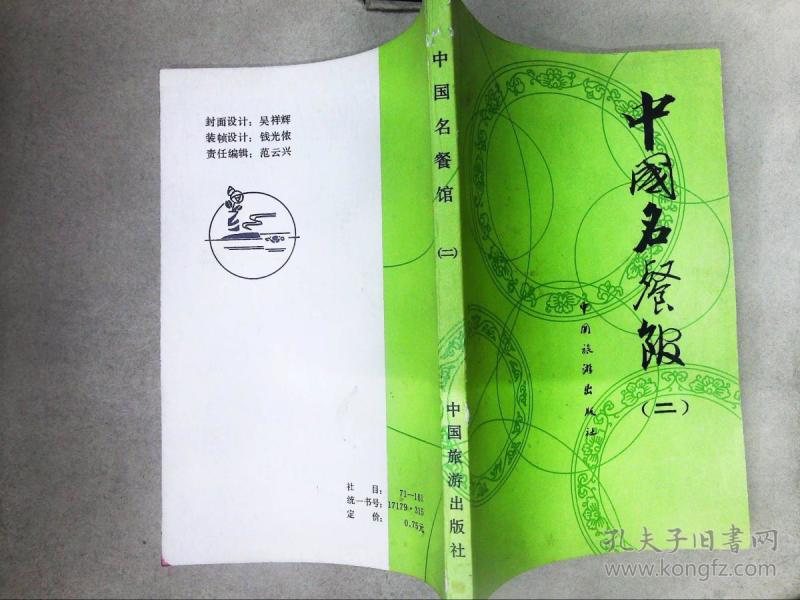 封面设计：吴祥辉
装帧设计：钱光侬
责任编辑：范云兴
社 目： 71—181
统一书号：17179·315
定 价： 0.75元
中国名餐馆
（二）
中国旅游出版社
中國名餐馆
（二）
中国旅游出版社
孔夫子旧书网
www.kongfz.com